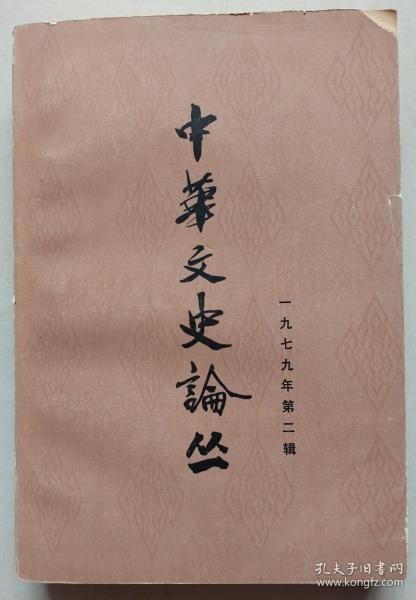 中華文史論丛
一九七九年第二辑
孔夫子旧书网
www.kongfz.com